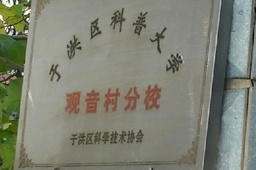 于洪区科普大学
观音村分校
于洪区科学技术协会